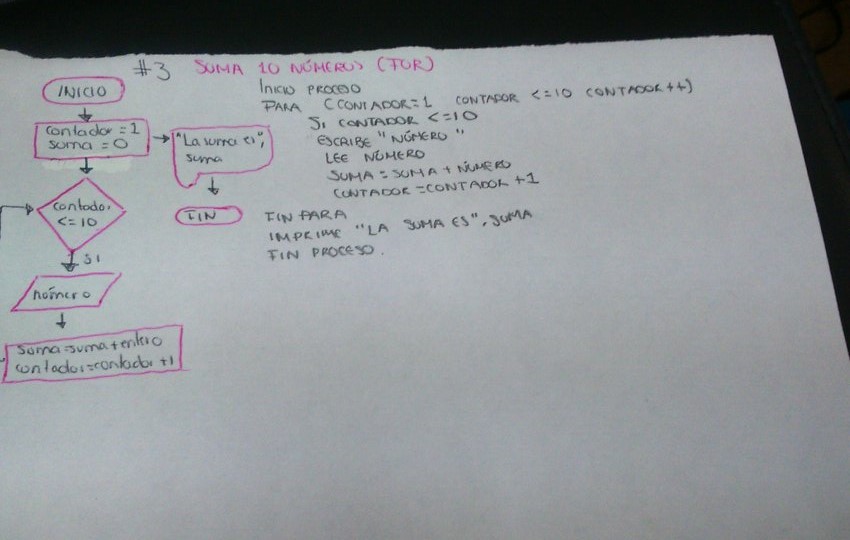 #3 SUMA 10 NÚMEROS (FOR)
INICIO
contador = 1
suma = 0
"La suma es",
suma
FIN
contador
<= 10
SI
número
suma=suma+entero
contador=contador+1
INICIO PROCESO
PARA (CONTADOR=1 CONTADOR <=10 CONTADOR ++)
SI CONTADOR <=10
ESCRIBE "NÚMERO"
LEE NÚMERO
SUMA = SUMA + NÚMERO
CONTADOR = CONTADOR +1
FIN PARA
IMPRIME "LA SUMA ES", SUMA
FIN PROCESO.